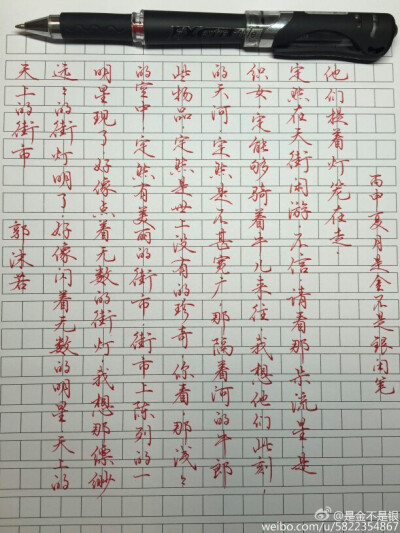 天上的街市 郭沫若
远々的街灯明了·好像闪着无数的明星·天上的
明星现了·好像点着无数的街灯·我想那缥缈
的空中·定然有美丽的街市·街市上陈列的一
些物品·定然是世上没有的珍奇·你看·那浅々
的天河·定然是不甚宽广·那隔着河的牛郎
织女·定能够骑着牛儿来往·我想他们此刻·
定然在天街闲游·不信·请看那朵流星·是
他们提着灯笼在走·
丙申夏月是金不是银闲笔
@是金不是银
weibo.com/u/5822354867